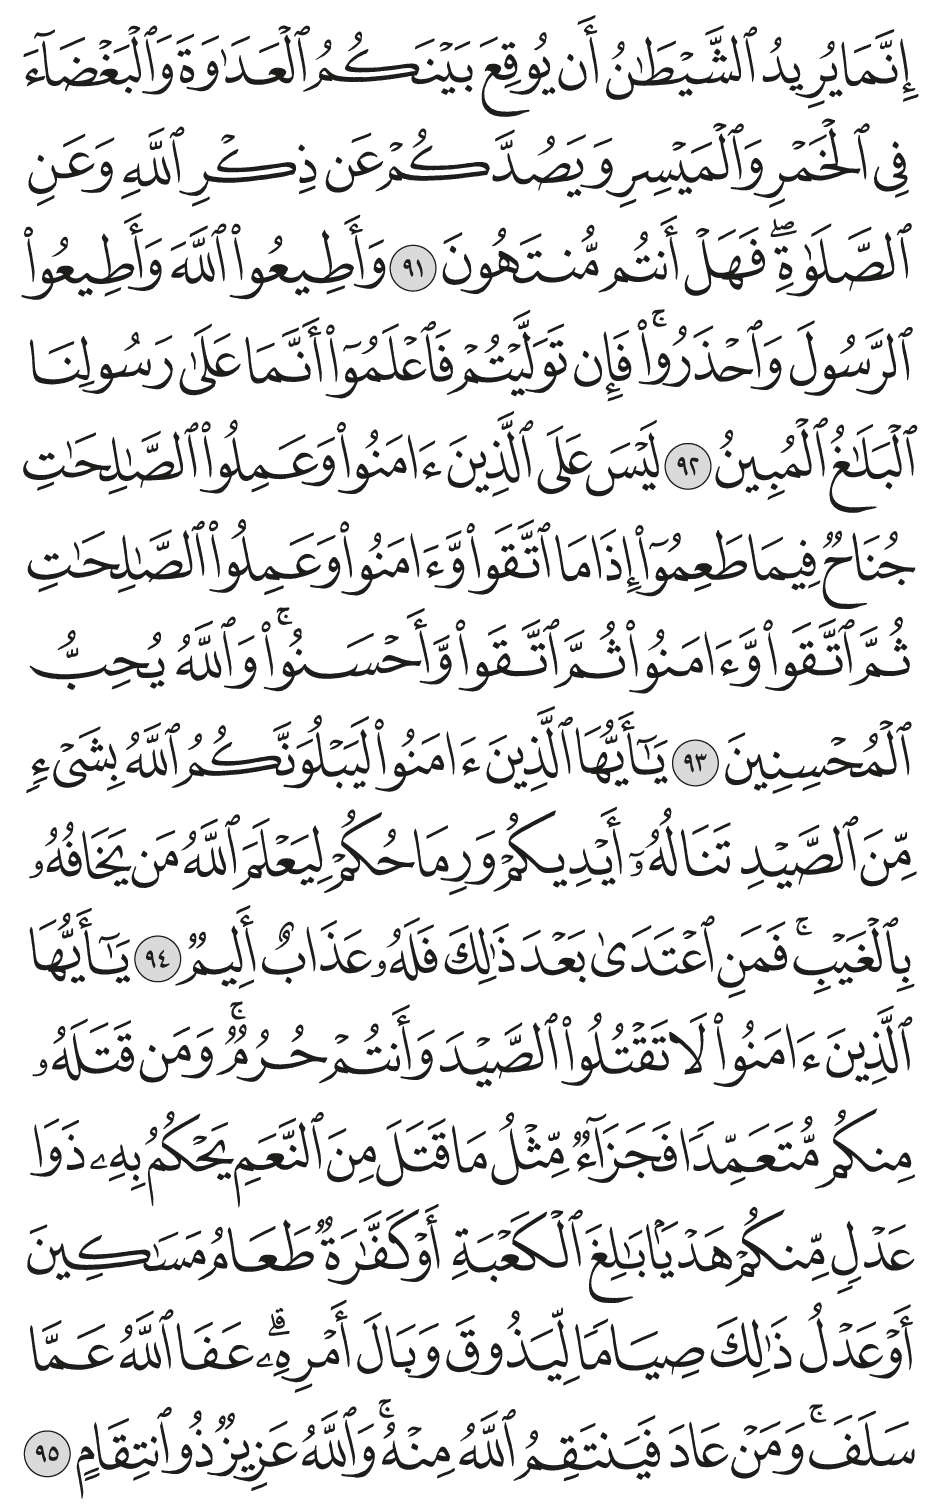 إِنَّمَا يُرِيدُ ٱلشَّيۡطَٰنُ أَن يُوقِعَ بَيۡنَكُمُ ٱلۡعَدَٰوَةَ وَٱلۡبَغۡضَآءَ
فِي ٱلۡخَمۡرِ وَٱلۡمَيۡسِرِ وَيَصُدَّكُمۡ عَن ذِكۡرِ ٱللَّهِ وَعَنِ
ٱلصَّلَوٰةِۖ فَهَلۡ أَنتُم مُّنتَهُونَ ٩١ وَأَطِيعُواْ ٱللَّهَ وَأَطِيعُواْ
ٱلرَّسُولَ وَٱحۡذَرُواْۚ فَإِن تَوَلَّيۡتُمۡ فَٱعۡلَمُوٓاْ أَنَّمَا عَلَىٰ رَسُولِنَا
ٱلۡبَلَٰغُ ٱلۡمُبِينُ ٩٢ لَيۡسَ عَلَى ٱلَّذِينَ ءَامَنُواْ وَعَمِلُواْ ٱلصَّٰلِحَٰتِ
جُنَاحٞ فِيمَا طَعِمُوٓاْ إِذَا مَا ٱتَّقَواْ وَّءَامَنُواْ وَعَمِلُواْ ٱلصَّٰلِحَٰتِ
ثُمَّ ٱتَّقَواْ وَّءَامَنُواْ ثُمَّ ٱتَّقَواْ وَّأَحۡسَنُواْۚ وَٱللَّهُ يُحِبُّ
ٱلۡمُحۡسِنِينَ ٩٣ يَٰٓأَيُّهَا ٱلَّذِينَ ءَامَنُواْ لَيَبۡلُوَنَّكُمُ ٱللَّهُ بِشَيۡءٖ
مِّنَ ٱلصَّيۡدِ تَنَالُهُۥٓ أَيۡدِيكُمۡ وَرِمَاحُكُمۡ لِيَعۡلَمَ ٱللَّهُ مَن يَخَافُهُۥ
بِٱلۡغَيۡبِۚ فَمَنِ ٱعۡتَدَىٰ بَعۡدَ ذَٰلِكَ فَلَهُۥ عَذَابٌ أَلِيمٞ ٩٤ يَٰٓأَيُّهَا
ٱلَّذِينَ ءَامَنُواْ لَا تَقۡتُلُواْ ٱلصَّيۡدَ وَأَنتُمۡ حُرُمٞۚ وَمَن قَتَلَهُۥ
مِنكُم مُّتَعَمِّدٗا فَجَزَآءٞ مِّثۡلُ مَا قَتَلَ مِنَ ٱلنَّعَمِ يَحۡكُمُ بِهِۦ ذَوَا
عَدۡلٖ مِّنكُمۡ هَدۡيَۢا بَٰلِغَ ٱلۡكَعۡبَةِ أَوۡ كَفَّٰرَةٞ طَعَامُ مَسَٰكِينَ
أَوۡ عَدۡلُ ذَٰلِكَ صِيَامٗا لِّيَذُوقَ وَبَالَ أَمۡرِهِۦۗ عَفَا ٱللَّهُ عَمَّا
سَلَفَۚ وَمَنۡ عَادَ فَيَنتَقِمُ ٱللَّهُ مِنۡهُۚ وَٱللَّهُ عَزِيزٞ ذُو ٱنتِقَامٍ ٩٥